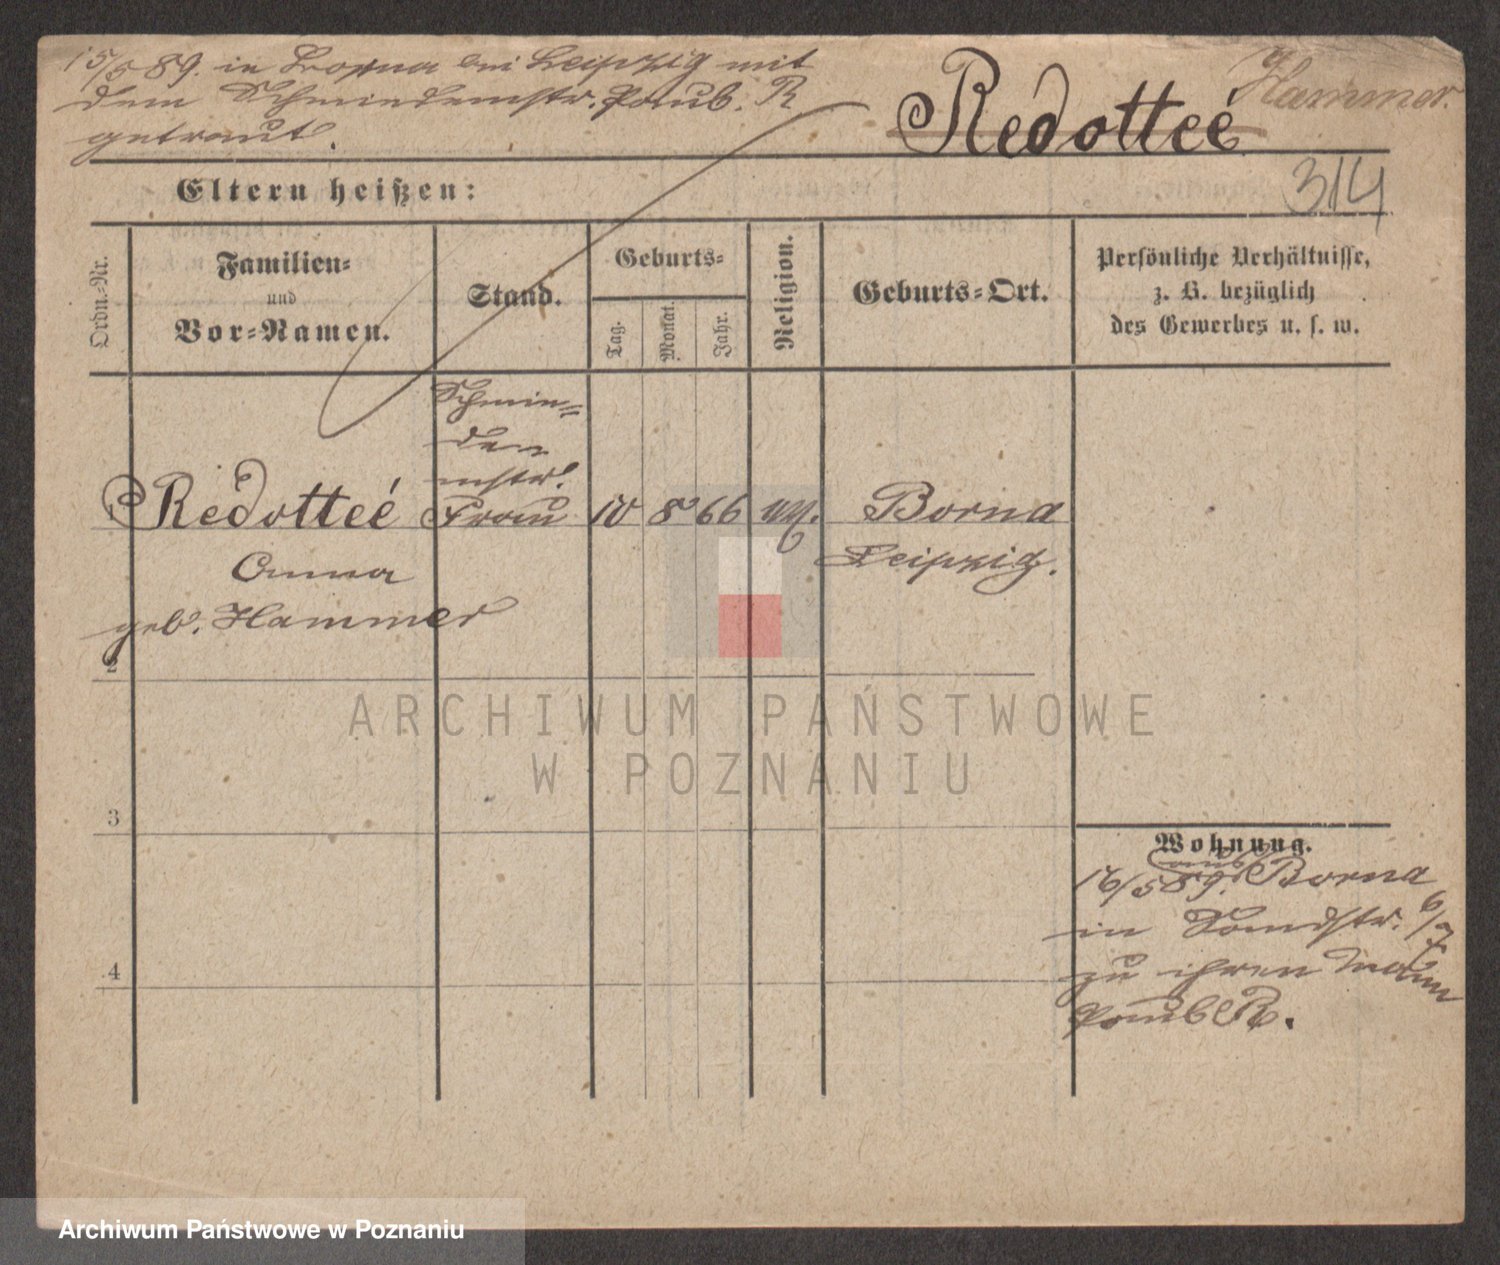 15/5 89. in Borna bei Leipzig mit
dem Schmiedemstr. Paul. R
getraut.
Hammer.
Redotteé
314
Eltern heißen:
Ordn.-Nr.
Familien-
und
Vor-Namen.
Stand.
Geburts-
Tag.
Monat.
Jahr.
Religion.
Geburts-Ort.
Persönliche Verhältnisse,
z. B. bezüglich
des Gewerbes u. s. w.
Schmie-
de
mstr.
Redotteé Frau 10 8 66 Borna
Anna Leipzig.
geb. Hammer
2
3
4
Wohnung.
aus
16/5 89. Borna
in Sandstr. 6/7
zu ihren Mann
Paul R.
ARCHIWUM PAŃSTWOWE
W POZNANIU
Archiwum Państwowe w Poznaniu